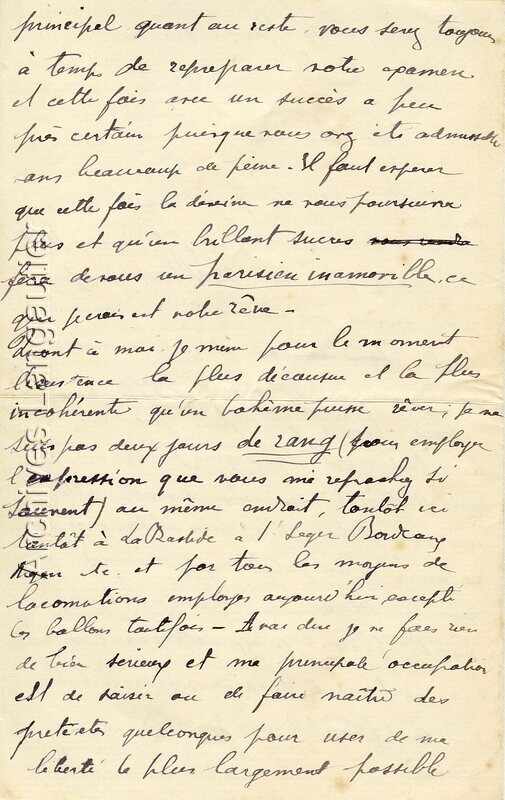 principal quant au reste, vous serez toujours
à temps de repreparer votre examen
et cette fois avec un succès a peu
près certain puisque vous avez été admissible
sans beaucoup de peine. Il faut esperer
que cette fois la déveine ne vous poursuivra
plus et qu'un brillant succes
fera de vous un parisien inamovible, ce
qui je crois est votre rêve -
Quant à moi je mène pour le moment
l'existence la plus décousue et la plus
incohérente qu'un bohème puisse rêver; je ne
suis pas deux jours de rang (pour employer
l'expression que vous me reprochez si
souvent) au même endroit, tantôt ici
tantôt à La Bastide a St Leger Bordeaux
etc. et par tous les moyens de
locomotions employes aujourd'hui, excepté
les ballons toutefois - A vrai dire je ne fais rien
de bien sérieux et ma principale occupation
est de saisir ou de faire naître des
pretextes quelconques pour user de ma
liberté le plus largement possible
Archives Largautier